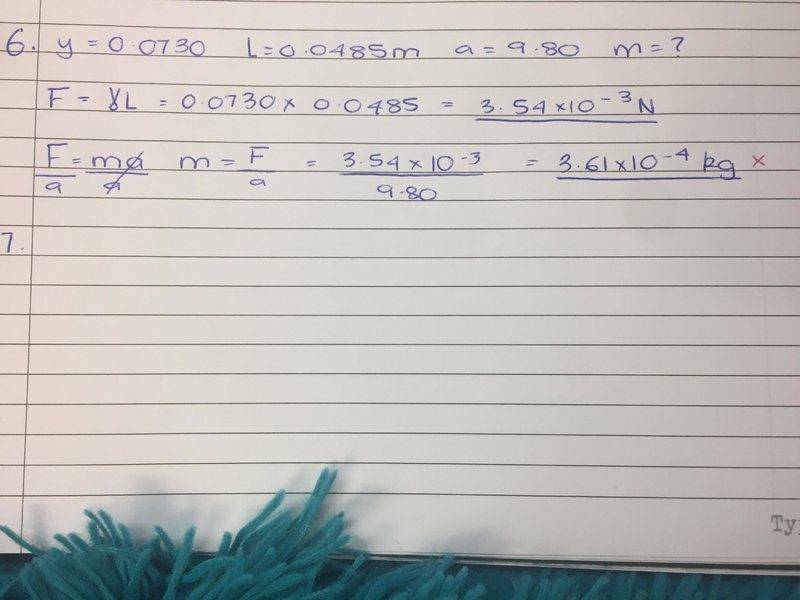 6. y = 0.0730 L=0.0485m a = 9.80 m = ?
F = γL = 0.0730 x 0.0485 = 3.54 x10⁻³N
F/a = ma/a m = F/a = 3.54 x 10⁻³/9.80 = 3.61 x10⁻⁴ kg ×
7.
Ty